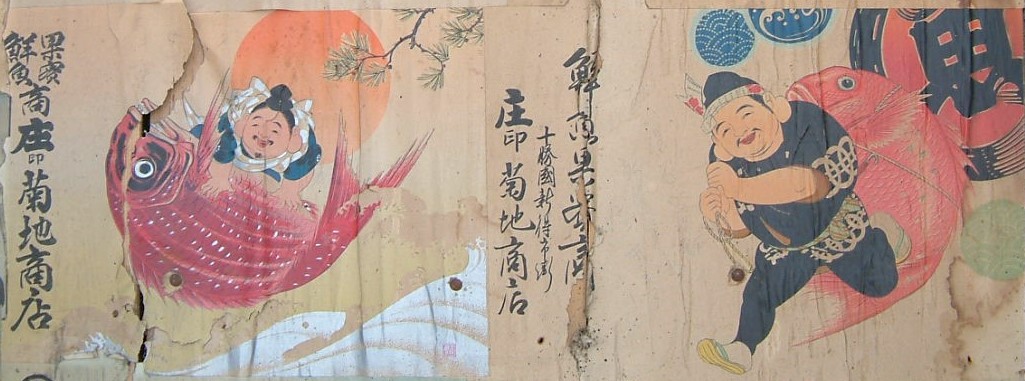 鮮魚果實商
十勝國新得市街
庄印 菊地商店
果實
鮮魚
商 庄印 菊地商店